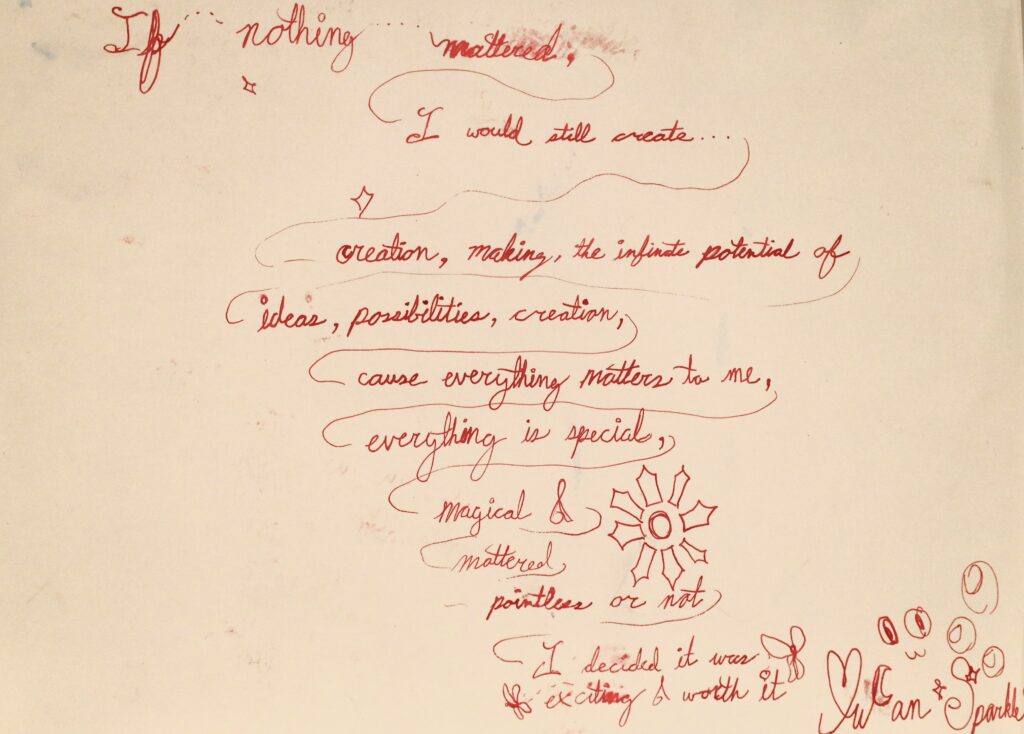 If nothing mattered,
I would still create...
creation, making, the infinite potential of
ideas, possibilities, creation,
cause everything matters to me,
everything is special,
magical &
mattered
pointless or not
I decided it was
exciting & worth it
Can Sparkle